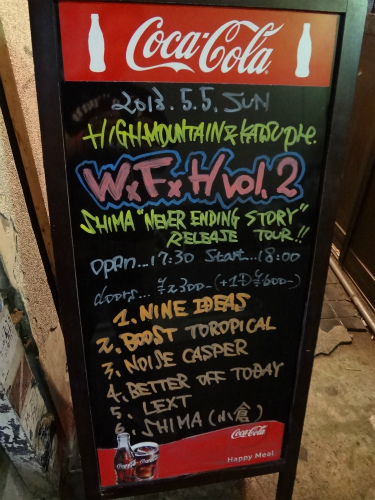 Coca-Cola
2018.5.5.SUN
HIGH MOUNTAIN &
WxFxH vol.2
SHIMA "NEVER ENDING STORY"
RELEASE TOUR!!
open...17:30 Start...18:00
doors...¥2300-(+1D¥600-)
1. NINE IDEAS
2. BOOST TOROPICAL
3. NOISE CASPER
4. BETTER OFF TODAY
5. LEXT
6. SHIMA (小倉)
Coca-Cola
Coca-Cola
Happy Meal